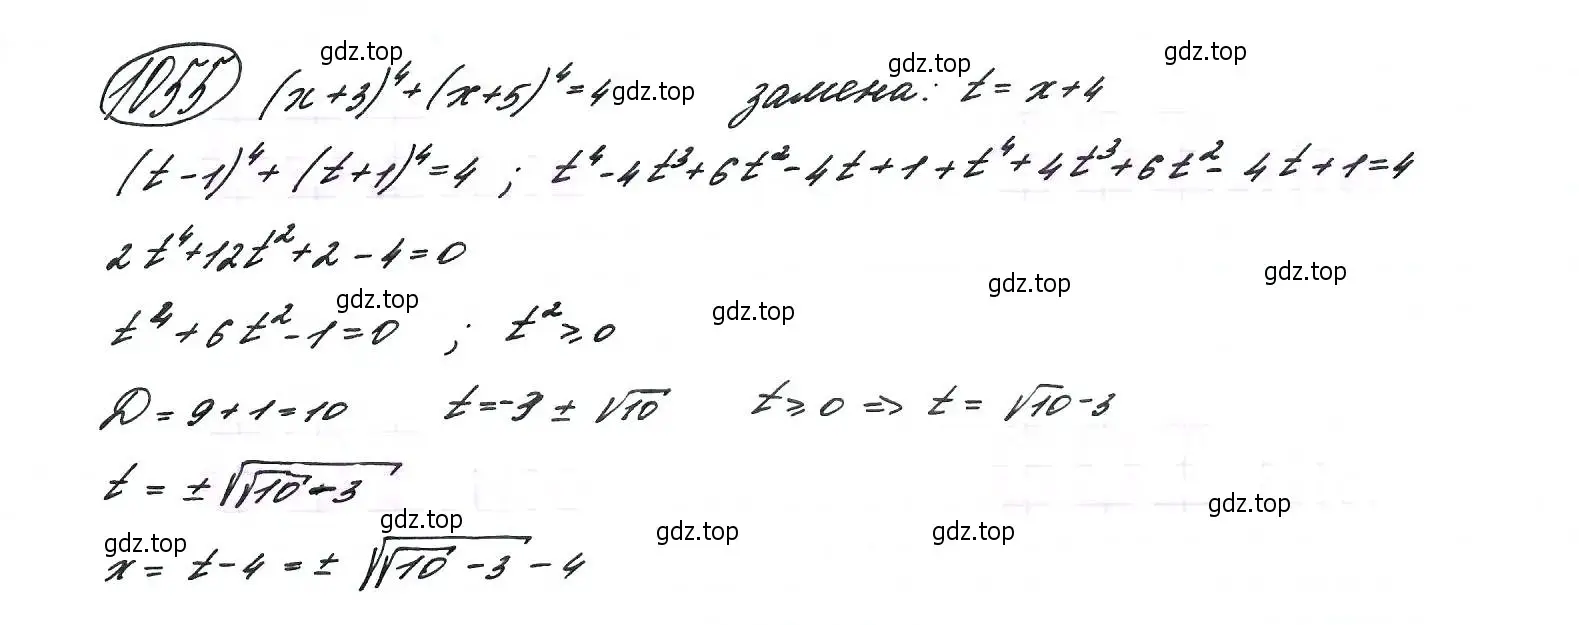 gdz.top gdz.top gdz.top
1055 (x+3)⁴+(x+5)⁴=4 gdz.top замена: t = x+4
(t-1)⁴+(t+1)⁴=4 ; t⁴-4t³+6t²-4t+1+t⁴+4t³+6t²-4t+1=4
2t⁴+12t²+2-4=0
gdz.top gdz.top gdz.top gdz.top
t⁴+6t²-1=0 ; t²≥0
D=9+1=10 t=-3±√10 t≥0 => t=√10-3
t=±√(√10-3)
gdz.top gdz.top gdz.top gdz.top gdz.top
x=t-4=±√(√10-3)-4